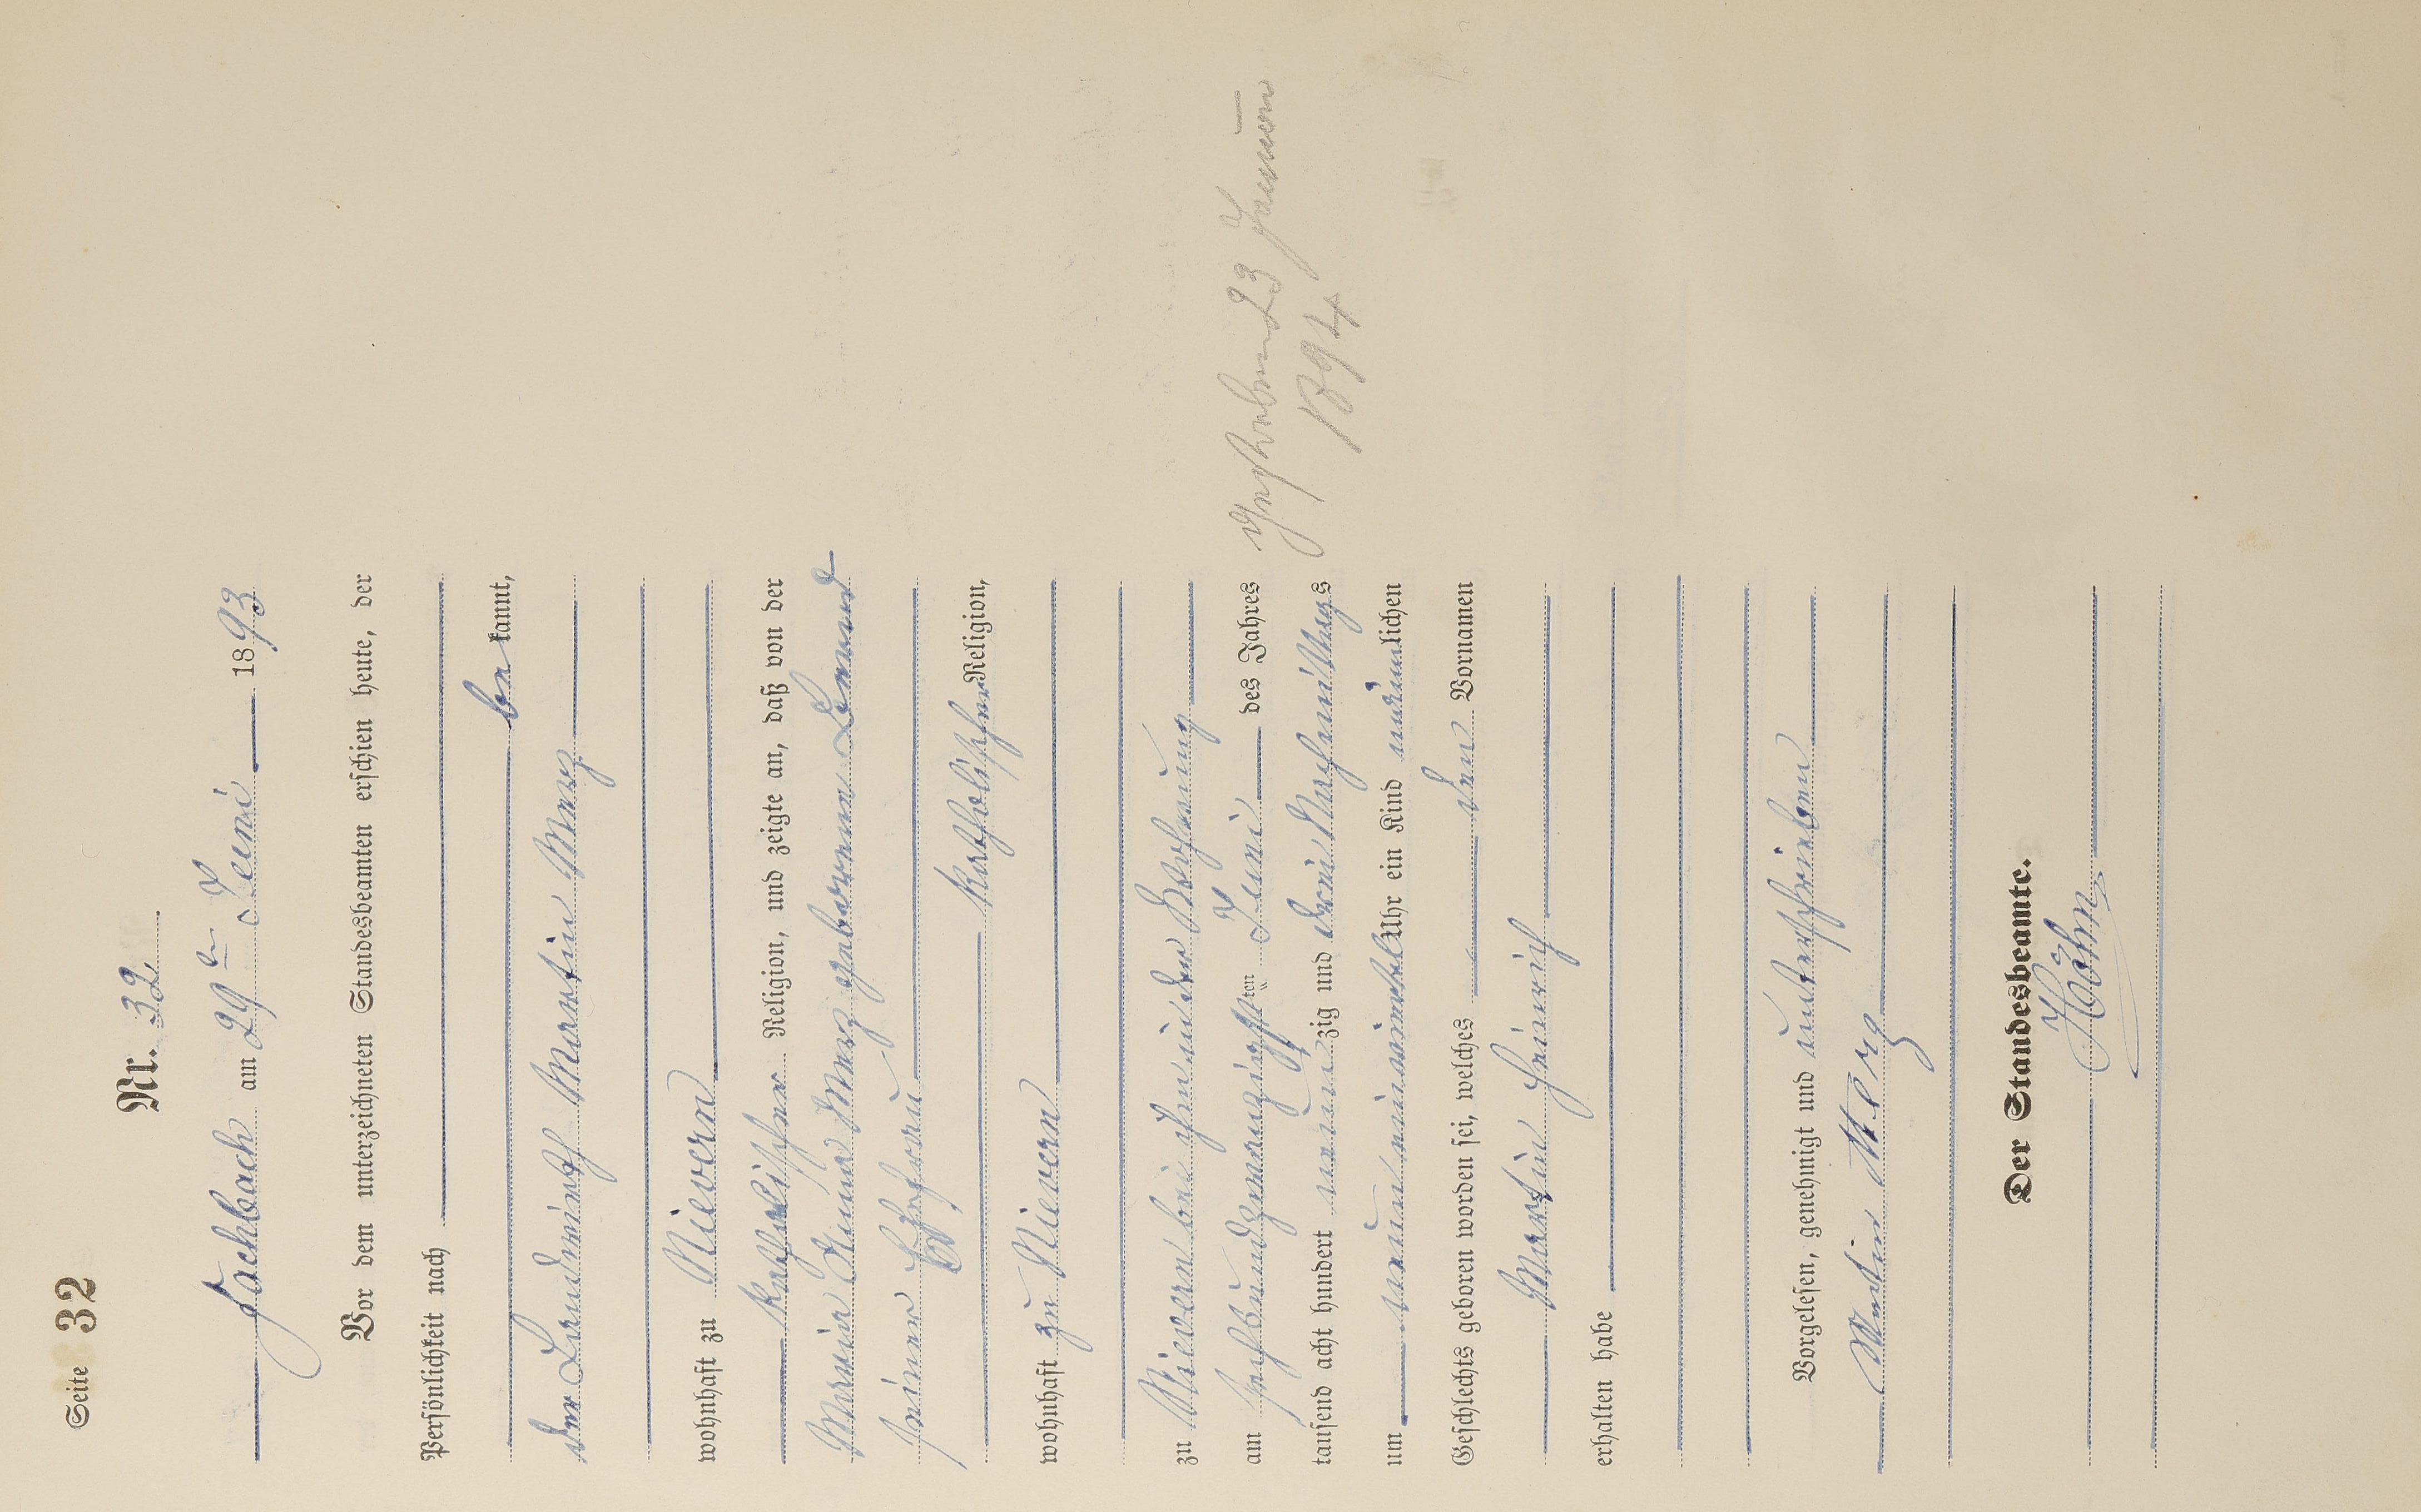 Seite 32
Nr. 32
Fachbach am 29ten Juni 1893
Vor dem unterzeichneten Standesbeamten erschien heute, der
Persönlichkeit nach
bekannt,
der Landwirth Martin Merz
wohnhaft zu Nievern
katholischer Religion, und zeigte an, daß von der
Maria Anna Merz geborenen
seiner Ehefrau
katholischer Religion,
wohnhaft zu Nievern
zu Nievern bei ihm in der Wohnung
am sechsundzwanzigsten Juni des Jahres
tausend acht hundert neunzig und drei Nachmittags
um neun einviertel Uhr ein Kind männlichen
Geschlechts geboren worden sei, welches den Vornamen
Martin Heinrich
erhalten habe
Vorgelesen, genehmigt und unterschrieben
Martin Merz
Der Standesbeamte.
Höhn
Gestorben 23 Januar
1894